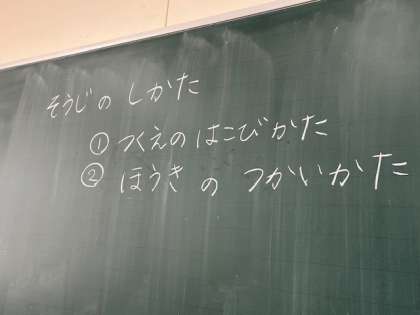 そうじの しかた
① つくえの はこびかた
② ほうき の つかいかた